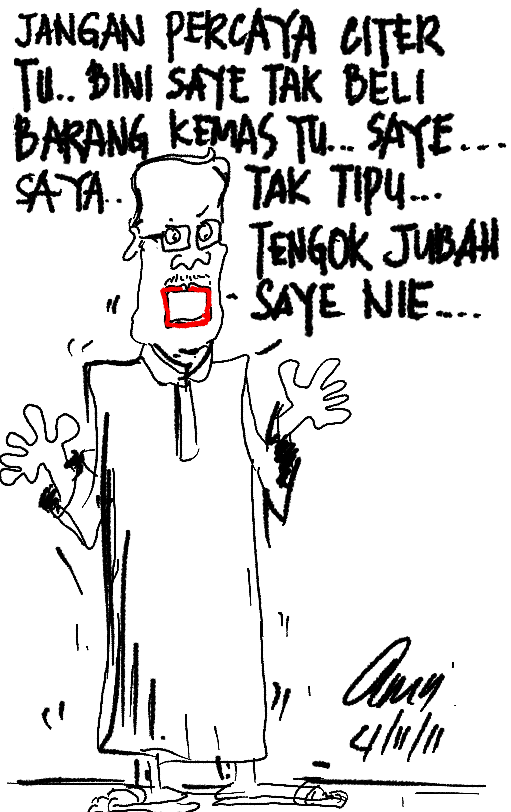 JANGAN PERCAYA CITER
TU.. BINI SAYE TAK BELI
BARANG KEMAS TU... SAYE....
SAYA.. TAK TIPU...
TENGOK JUBAH
SAYE NIE....
4/11/11